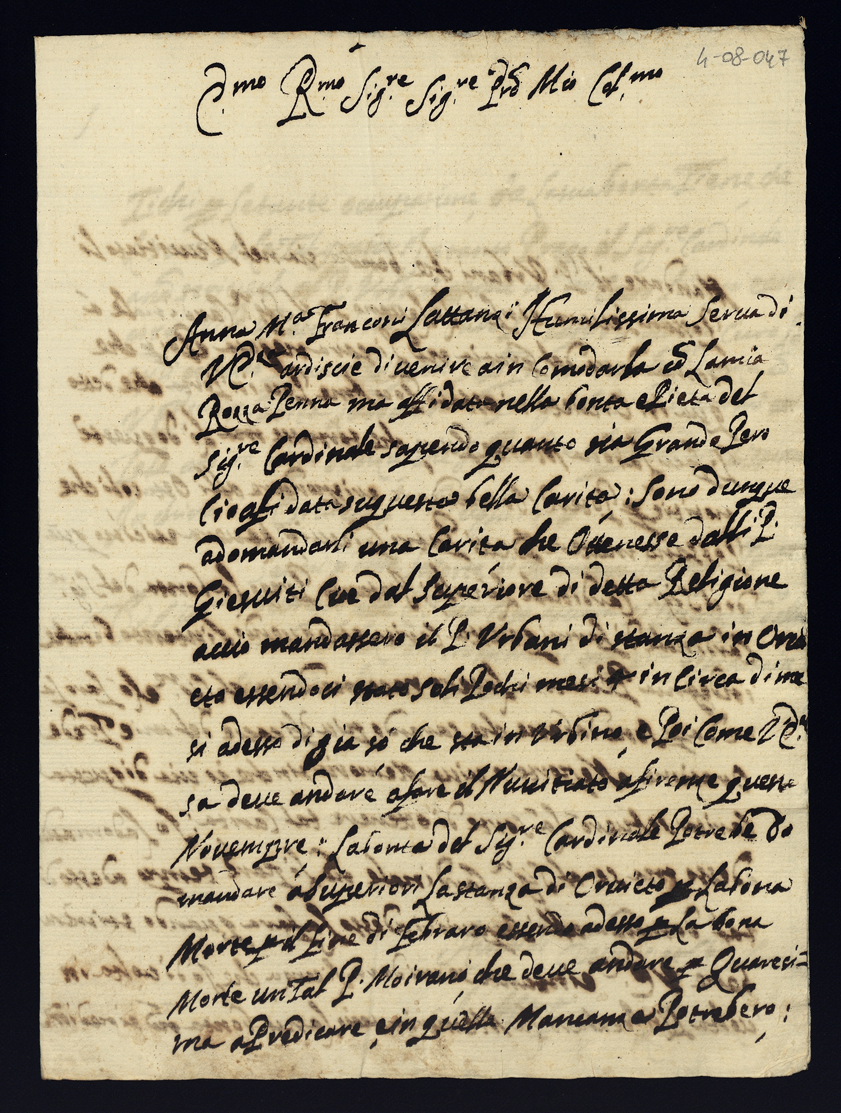 4-08-047
E.mo R.mo Sig.re Sig.re Prõ Mio Col.mo
Anna M.a Franconi Lattanzi Humilissima Serua di
V.E. ardiscie di uenire a in Comodarla cõ La mia
Rozza Penna ma affidata nella bonta e Pieta del
Sig.re Cardinale sapendo quanto sia Grande Pero
Cio afidata su questa bella Carita; sono dunque
adomandarli una Carita che Otenesse dalli P.
Giesuiti Cue dal Superiore di detta Religione
accio mandassero il P. Vrbani di stanza in Orui
eto essendoci stato soli Pochi mesi in Circa di me
si adesso di gia só che sta in Vrbino, e Poi Come V.E.
sa deue andare á fare il Nuuitiato á firenze questo
Nouempre; La bonta del Sig.re Cardinale Potrebe do
mandare á Superiori La stanza di Oruieto p La bona
Morte p il fine di Febraro essendo adesso p La bona
Morte un Tal P. Moirani che deue andare p Quaresi=
ma a Predicare e in quella Mancanza Potrebero;